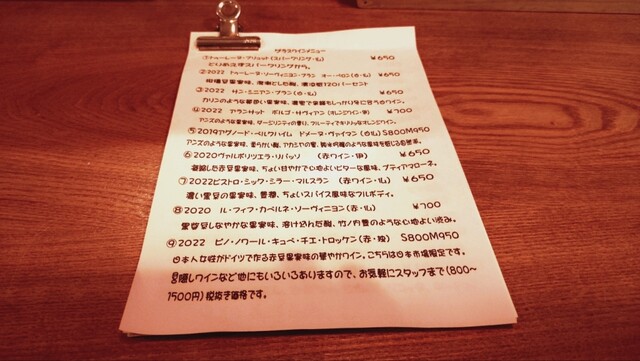 グラスワインメニュー
①トゥーレーヌ・ブリュット(スパークリング・仏) ￥650
とりあえずスパークリングから。
②2022 トゥーレーヌ・ソーヴィニヨン・ブラン (白・仏) ￥650
柑橘豆果実味、 120パーセント
③2022 サン・ミニアン・ブラン(白・仏) ￥650
カリンのような果実味、濃密で余韻もしっかり をだワイン。
④2022 アランサット ボルゴ・サヴェアン (オレンジワイン・伊) ￥700
アンズのような果実味、ダージリンティの香り、フルーティでキリッとなオレンジワイン。
⑤2019アグノード・ベルクハイム ドメーヌ・ヴァイマン (白仏) S800M950
アンズのような果実味、柔らかい酸、アカシアの蜜、 のような風味を感じる自然派。
⑥2020ヴァルポリツェラ・リパッソ (赤ワイン・伊) ￥650
凝縮した赤豆果実味、ちょい甘やかで心地よいビターな風味、プティアマローネ。
⑦2022ビストロ・シック・シラー・マルスラン (赤ワイン・仏) ￥650
濃い黒豆の果実味、豊潤、ちょいスパイス風味なフルボディ。
⑧2020 ル・フィフ・カベルネ・ソーヴィニヨン(赤・仏) ￥700
黒豊豆しなやかな果実味、溶け込んだ酸、竹ノ内豊のような心地よい渋み。
⑨2022 ピノ・ノワール・キュベ・チエ・トロッケン(赤・独) S800M950
日本人女性がドイツで作る赤豆果実味の華やかワイン。こちらは日本市場限定です。
隠しワインなど他にもいろいろありますので、お気軽にスタッフまで(800～
1500円)税抜き価格です。